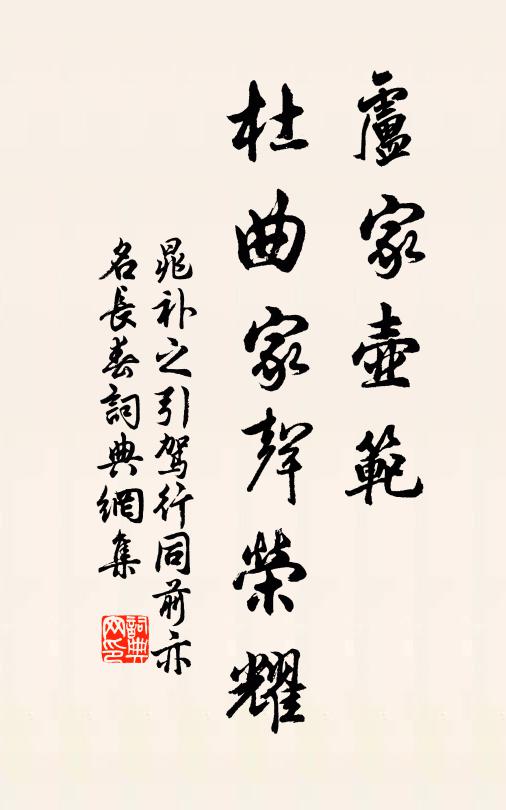 盧家壼範
杜曲家聲榮耀
晁補之引駕行同前亦
名長春詞典網集
詞典网印